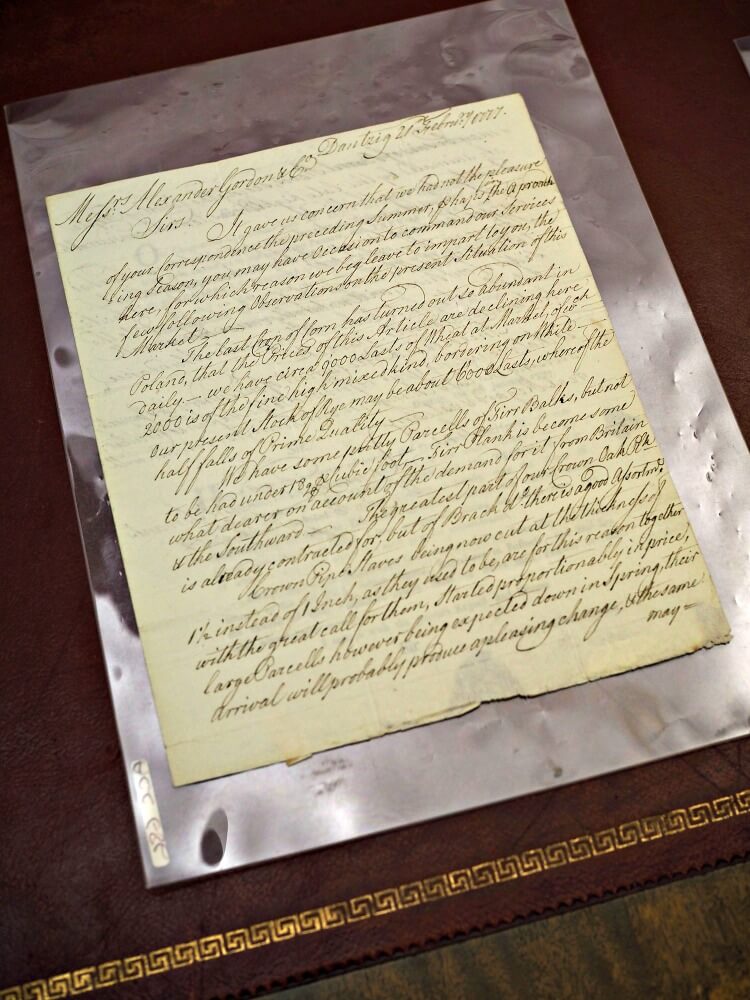 Dantzig 21st Febru:ry 1777.
Messrs. Alexander Gordon & Co
Sirs. It gave us concern that we had not the pleasure
of your Correspondence the preceding Summer, the Aproach
ing Season, you may have Occasion to command our Services
here, for which reason we beg leave to impart to you, the
few following Observations on the present Situation of this
Market.
The last Crop of Corn has turned out so abundant in
Poland, that the Prices of this Article are declining here
daily — we have circa 9000 Lasts of Wheat at Market, of wch
2000 is of the fine high mixed kind, borsering on White —
our present Stock of Rye may be about 6000 Lasts, whereof the
half falls of Prime Quality —
We have some pretty Parcells of Firr Balks, but not
to be had under 18 Cubic foot — Firr Plank is become some
what dearer on account of the demand for it from Britain
& the Southward — The greatest part of our Crown Oak Plk
is already contracted for, but of Brack do there is a good Assortmt
Crown Pipe Staves being now cut at the thickness of
1½ instead of 1 Inch, as they used to be, are for this reason together
with the great call for them, Started proportionably in price,
large Parcells however being expected down in Spring, their
arrival will probably produce a pleasing change, & the same
may =